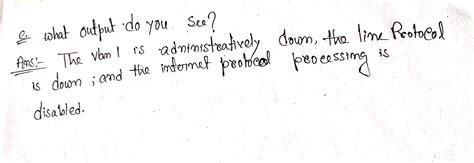 e. what output do you see?
Ans:- The vlan 1 is administratively down, the line Protocol
is down ; and the internet protocol processing is
disabled.